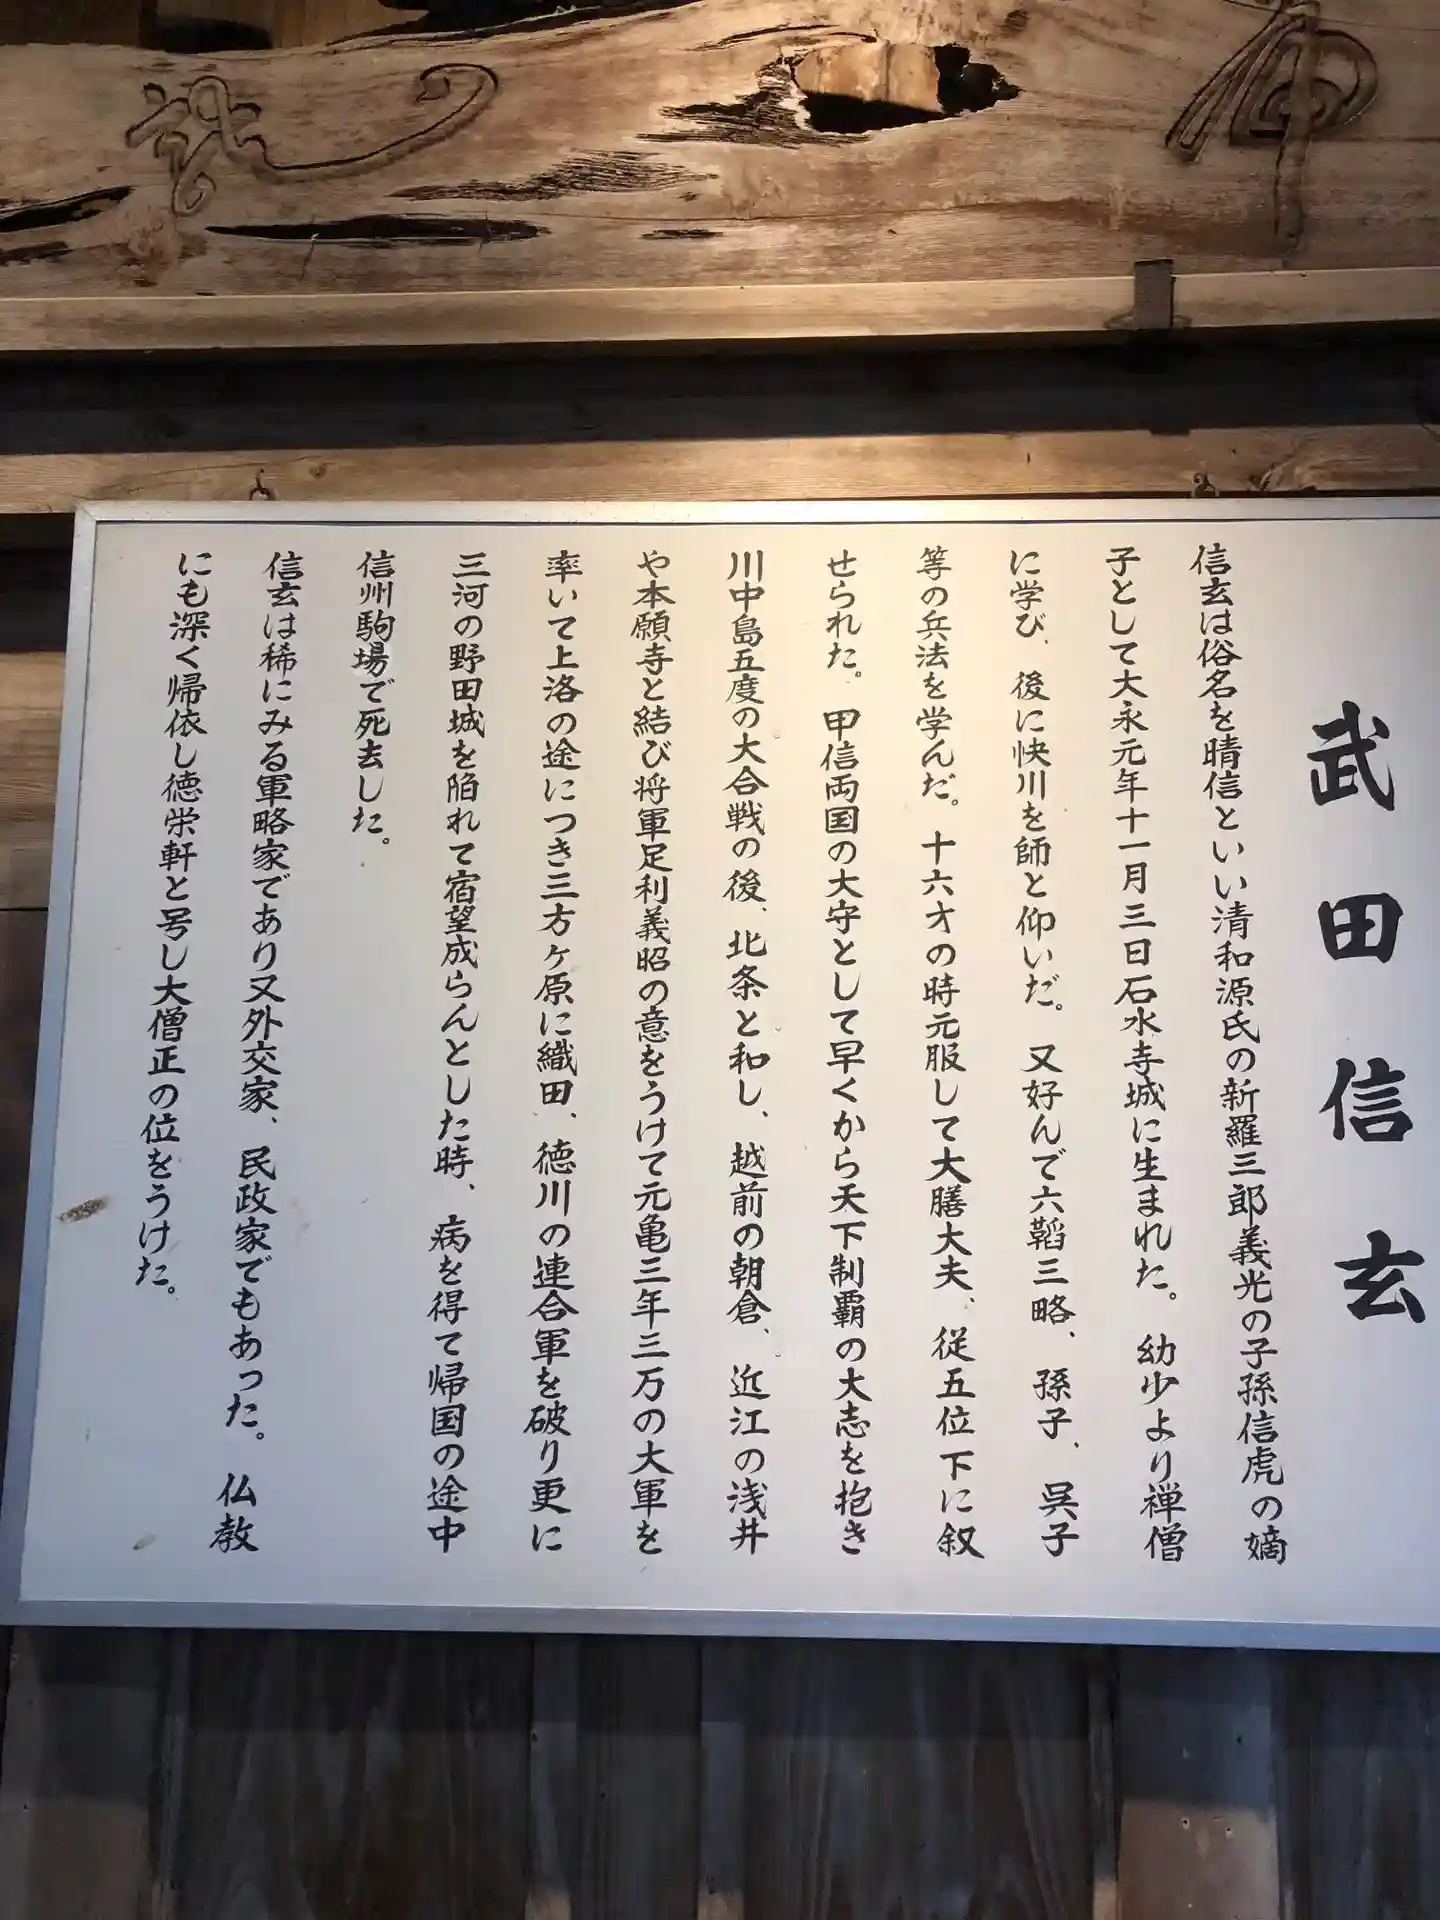 武田信玄
信玄は俗名を晴信といい清和源氏の新羅三郎義光の子孫信虎の嫡
子として大永元年十一月三日石水寺城に生まれた。幼少より禅僧
に学び、後に快川を師と仰いだ。又好んで六韜三略、孫子、呉子
等の兵法を学んだ。十六才の時元服して大膳大夫、従五位下に叙
せられた。甲信両国の大守として早くから天下制覇の大志を抱き
川中島五度の大合戦の後、北条と和し、越前の朝倉、近江の浅井
や本願寺と結び将軍足利義昭の意をうけて元亀三年三万の大軍を
率いて上洛の途につき三方ヶ原に織田、徳川の連合軍を破り更に
三河の野田城を陥れて宿望成らんとした時、病を得て帰国の途中
信州駒場で死去した。
信玄は稀にみる軍略家であり又外交家、民政家でもあった。仏教
にも深く帰依し徳栄軒と号し大僧正の位をうけた。